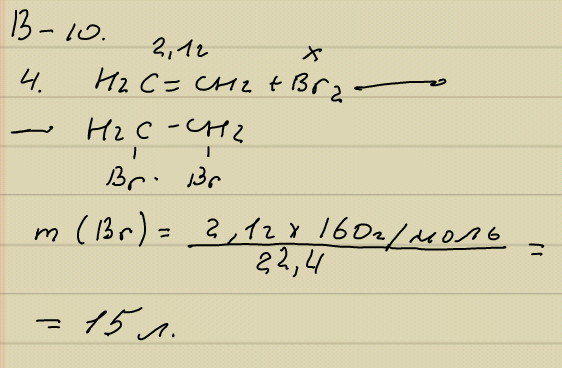 В - 10.
2,1г x
4. H2C = CH2 + Br2 ⟶
⟶ H2C - CH2
Br. Br
m (Br) = 2,1г x 160г/моль =
22,4
= 15 л.